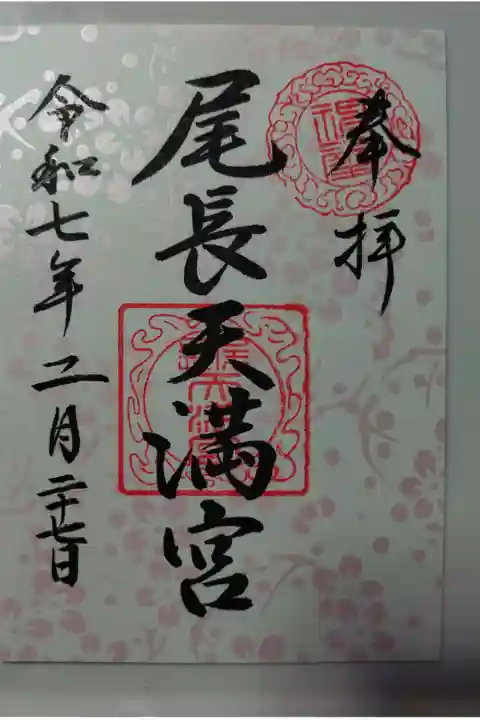 奉拝
尾長天満宮
令和七年二月二十七日